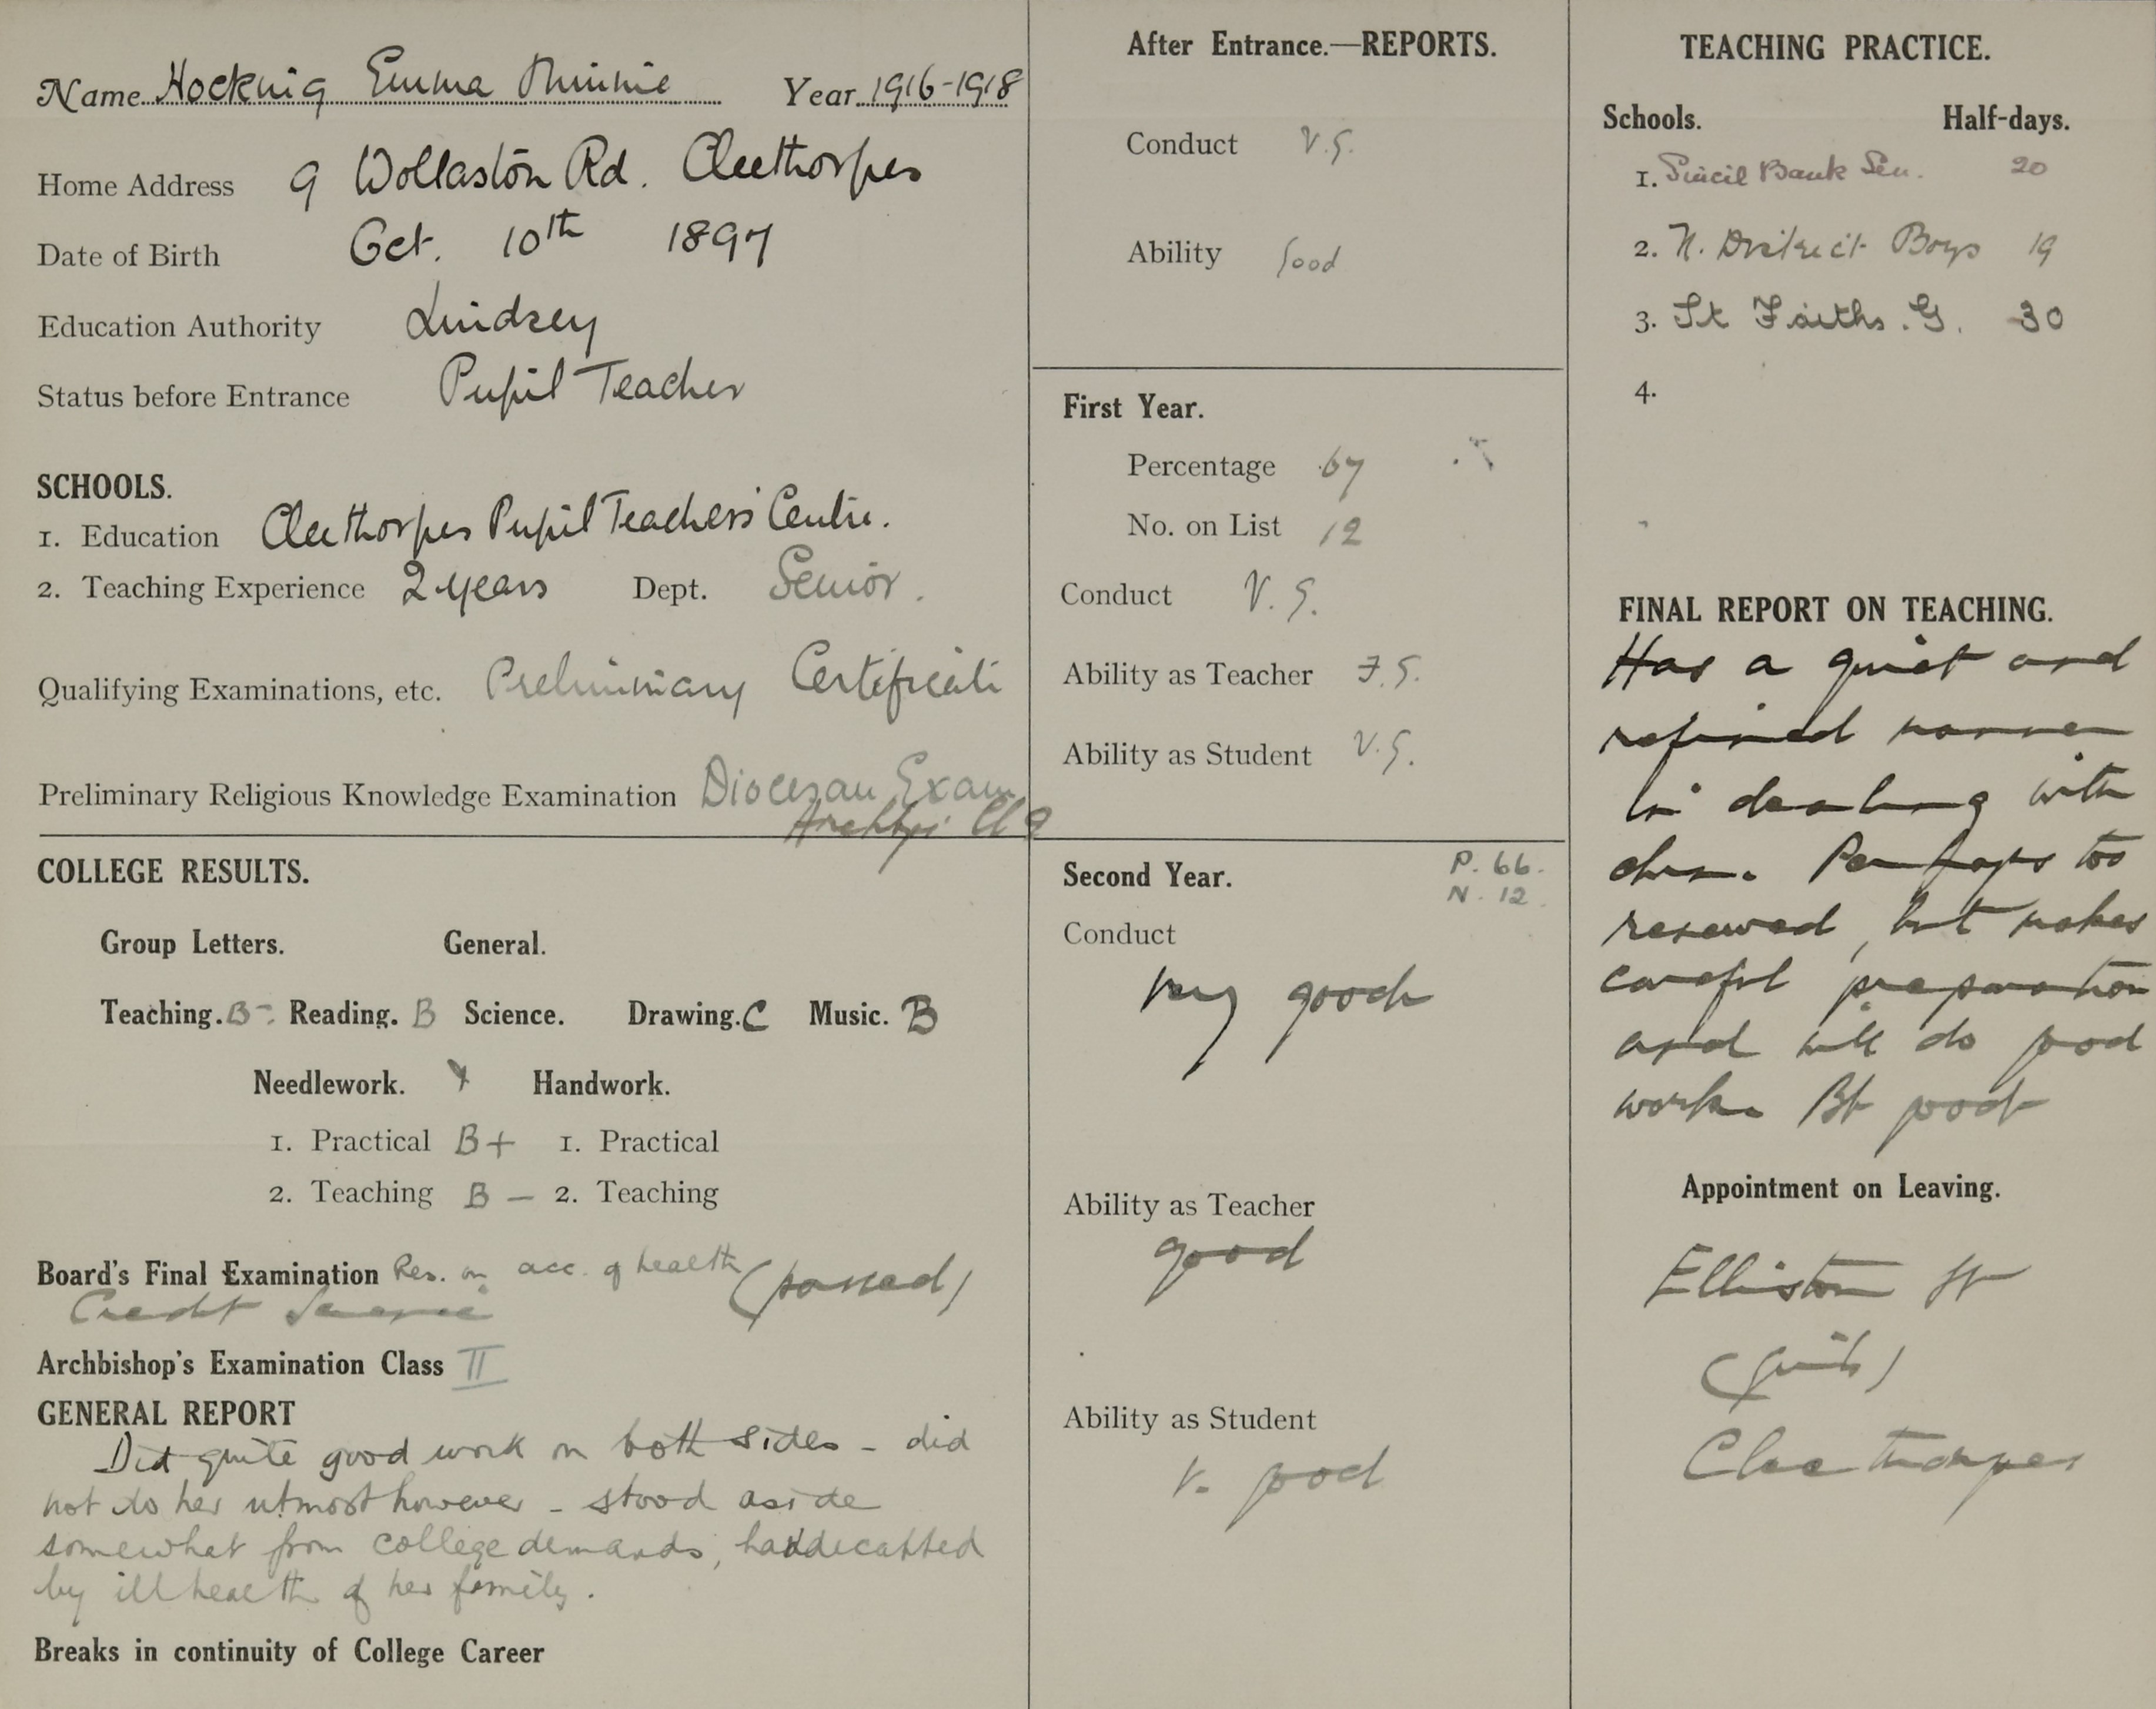 Name Hocknig Emma Minnie Year 1916-1918
Home Address 9 Wollaston Rd. Cleethorpes
Date of Birth Oct. 10th 1897
Education Authority Lindsey
Status before Entrance Pupil Teacher
SCHOOLS.
1. Education Cleethorpes Pupil Teachers' Centre.
2. Teaching Experience 2 years Dept. Senior.
Qualifying Examinations, etc. Preliminary Certificate
Preliminary Religious Knowledge Examination Diocesan Exam
Archbps'
COLLEGE RESULTS.
Group Letters. General.
Teaching. B- Reading. B Science. Drawing. C Music. B
Needlework. Handwork.
1. Practical B+ 1. Practical
2. Teaching B- 2. Teaching
Board's Final Examination Res. on acc. of health (passed)
Credit Science
Archbishop's Examination Class II
GENERAL REPORT
Did quite good work on both sides - did
not do her utmost however - stood aside
somewhat from college demands,
by ill health of her family.
Breaks in continuity of College Career
After Entrance.—REPORTS.
Conduct V.G.
Ability Good
First Year.
Percentage 67
No. on List 12
Conduct V.G.
Ability as Teacher F.G.
Ability as Student V.G.
Second Year. P. 66.
N. 12.
Conduct
very good
Ability as Teacher
good
Ability as Student
V. good
TEACHING PRACTICE.
Schools. Half-days.
1. Sincil Bank Sen. 20
2. N. District Boys 19
3. St Faiths. G. 30
4.
FINAL REPORT ON TEACHING.
Has a quiet and
refined manner
in dealing with
chn. Perhaps too
reserved, but makes
careful preparation
and will do good
work. good
Appointment on Leaving.
Elliston St
(girls)
Cleethorpes